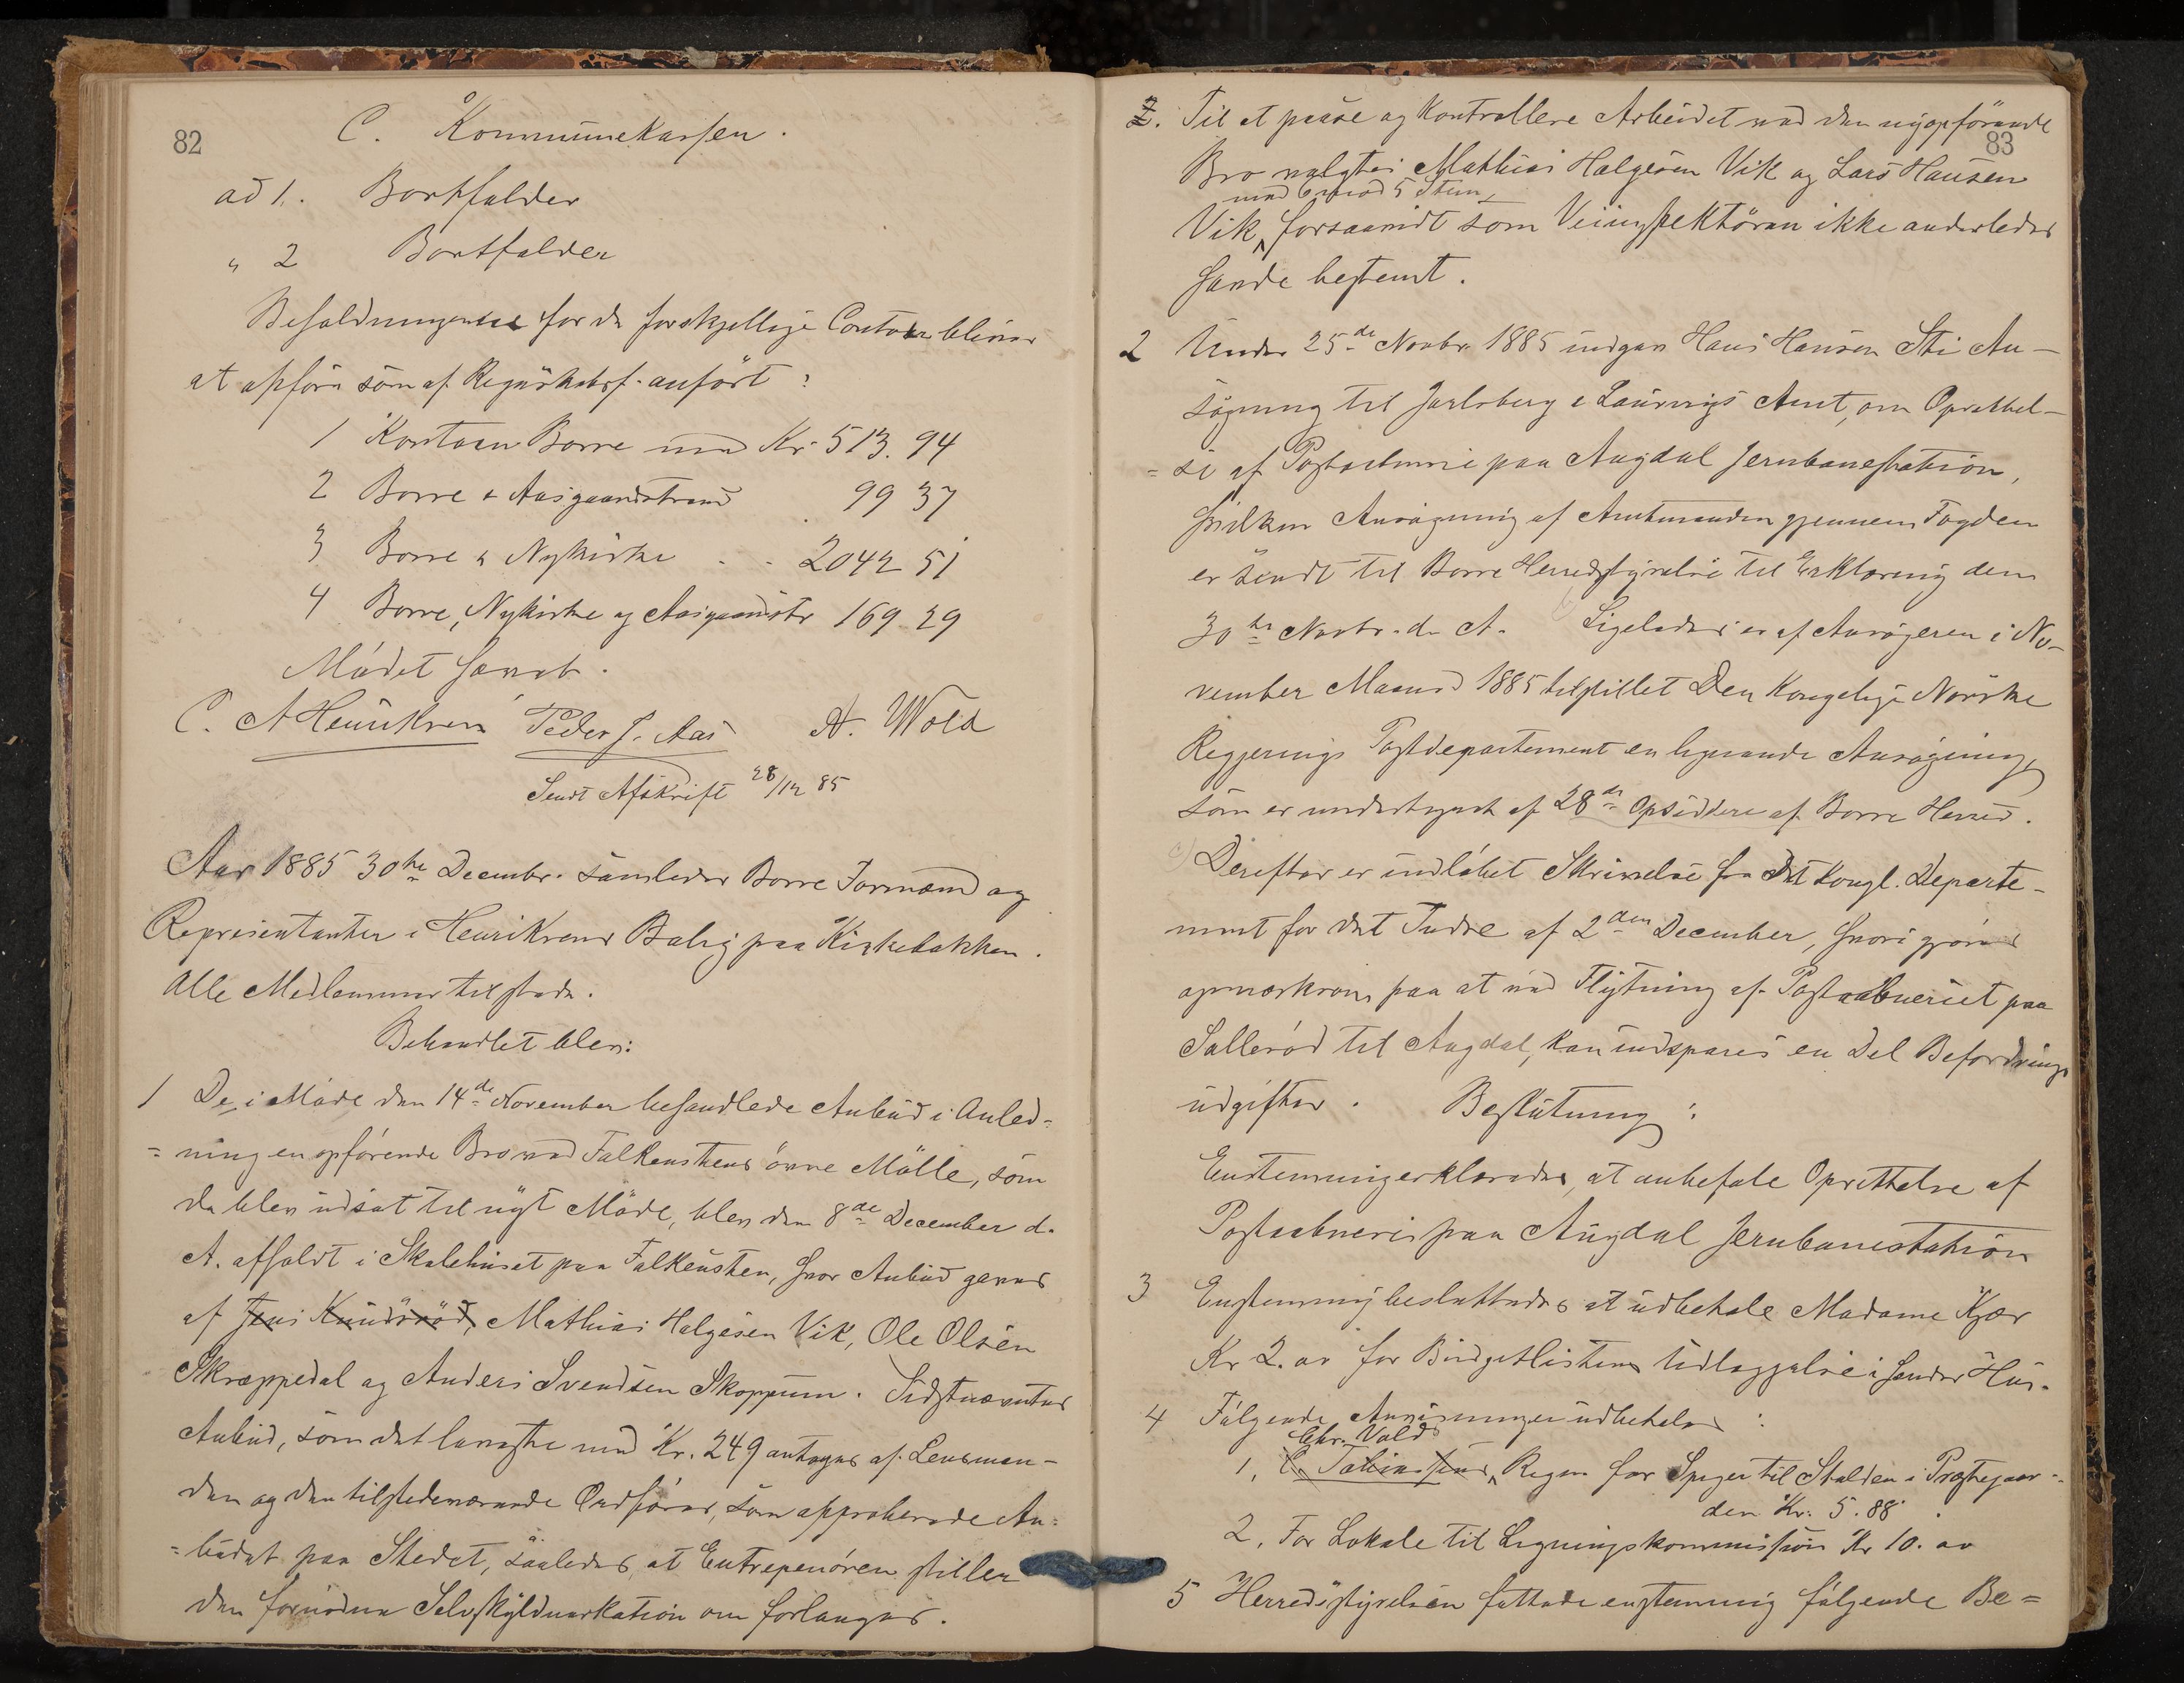 82
C. Kommunekassen.
ad 1. Bortfalder
" 2 Bortfalder
Beholdningerne for de forskjellige Contoer bliver
at opføre som af Regnskabsf. anført:
1 Kontoen Borre med Kr. 513.94
2 Borre & Aasgaardstrand 99 37
3 Borre & Nykirke . . 2042 51
4 Borre, Nykirke og Aasgaardstr 169.29
Mødet hævet.
C. A Henriksen Peder J. Aas A. Wold
Sendt Afskrift 28/12 85
Aar 1885 30te Decembr. samledes Borre Formænd og
Repræsentanter i Henriksens Bolig paa Kirkebakken.
Alle Medlemmer tilstede.
Behandlet blev:
1 De i Møde den 14de November behandlede Anbud i Anled-
=ning en opførende Bro ved Falkenstens øvre Mølle, som
da blev udsat til nyt Møde, blev den 8de December d.
A. afholdt i Skolehuset paa Falkensten, hvor Anbud gaves
af Jens Knudsrød, Mathias Helgesen Vik, Ole Olsen
Skræppedal og Anders Svendsen Skoppum. Sidstnævntes
Anbud, som det laveste med Kr. 249 antoges af Lensman-
den og den tilstedeværende Ordfører, som approberede An-
=budet paa Stedet, saaledes, at Entrepenøren stiller
den fornødne Selvskyldnerkation om forlanges.
83
2. Til at paase og kontrollere Arbeidet med den nyopførende
Bro valgtes Mathias Helgesen Vik og Lars Hansen
med 6 mod 5 Stem
Vik, forsaavidt som Veiinspektøren ikke anderledes
havde bestemt.
2 Under 25de Novbr 1885 indgav Hans Hansen Sti An-
søgning til Jarlsberg & Laurvigs Amt, om Oprettel-
=se af Postaabneri paa Augdal Jernbanestation,
hvilken Ansøgning af Amtmanden gjennem Fogden
er sendt til Borre Herredsstyrelse til Erklæring den
30te Novbr. d. A. Ligeledes er af Ansøgeren i No-
vember Maaned 1885 tilstillet Den Kongelige Norske
Regjerings Postdepartement en lignende Ansøgning,
som er undertegnet af 28de Opsiddere af Borre Herred.
Derefter er indløbet Skrivelse fra Det Kongl. Departe-
ment for det Indre af 2den December, hvori gjøres
opmærksom paa at ved Flytning af Postaabneriet paa
Sallerød til Augdal, kan indspares en Del Befordrings
udgifter. Beslutning:
Enstemmig erklæredes, at anbefale Oprettelse af
Postaabneri paa Augdal Jernbanestation
3 Enstemmig besluttedes at udbetale Madame Kjær
Kr 2.00 for Budgetlistens Udlæggelse i hendes Hus.
4 Følgende Anvisninger udbetales:
Chr. Volds
1. C. Tobiassens Regn. for Spiger til Stalden i Prestegaar-
den Kr. 5.88
2. For Lokale til Ligningskommission Kr 10.00
5 Herredsstyrelsen fattede enstemmig følgende Be=